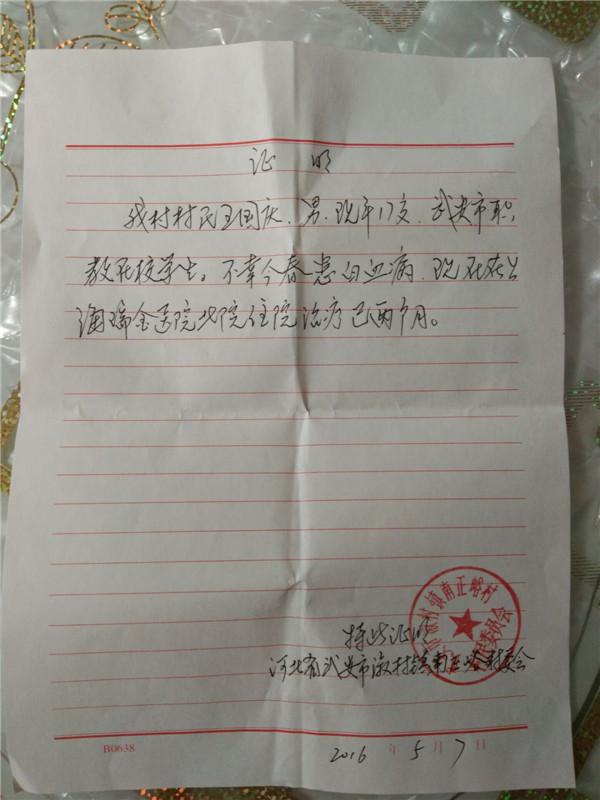 证 明
我村村民王国庆、男、现年17岁、武安市职
教在校学生。不幸今春患白血病、现在在上
海瑞金医院北院住院治疗已两个月。
特此证明
河北省武安市淑村镇南正峪村委会
淑村镇南正峪村
委员会
2016 年 5 月 7 日
B0638